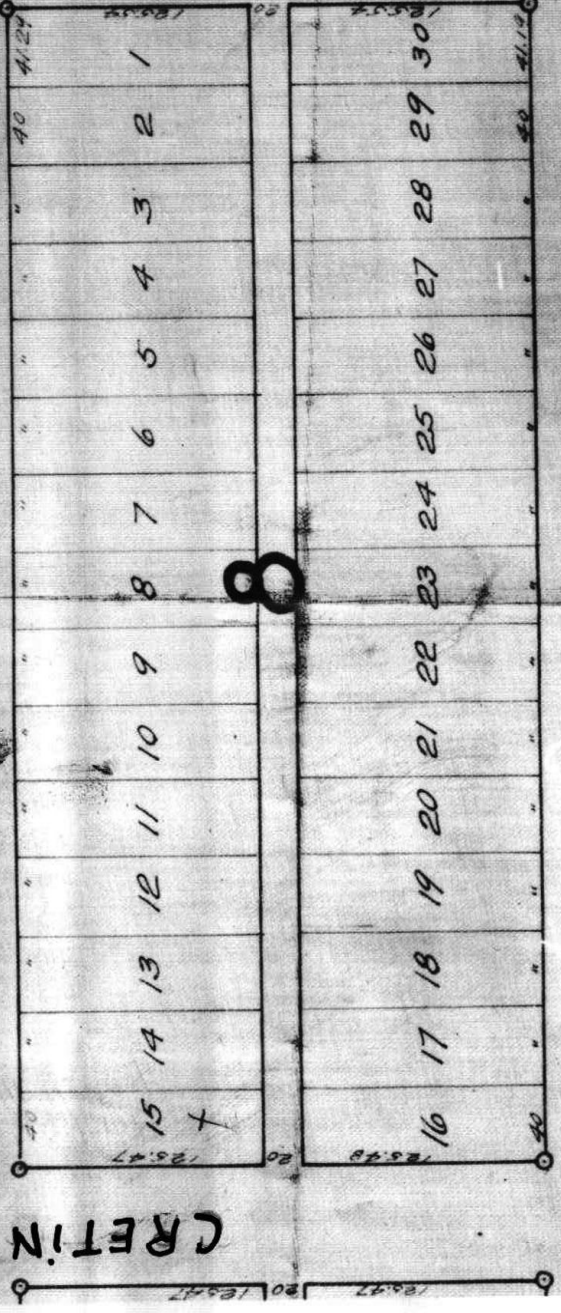 125.57 20 125.57
41.29 1 30 41.19
40 2 29 40
" 3 28 "
" 4 27 "
" 5 26 "
" 6 25 "
" 7 24 "
" 8 8 23 "
" 9 22 "
" 10 21 "
" 11 20 "
" 12 19 "
" 13 18 "
" 14 17 "
40 15 16 40
125.47 20 125.48
CRETIN
125.47 20 125.47